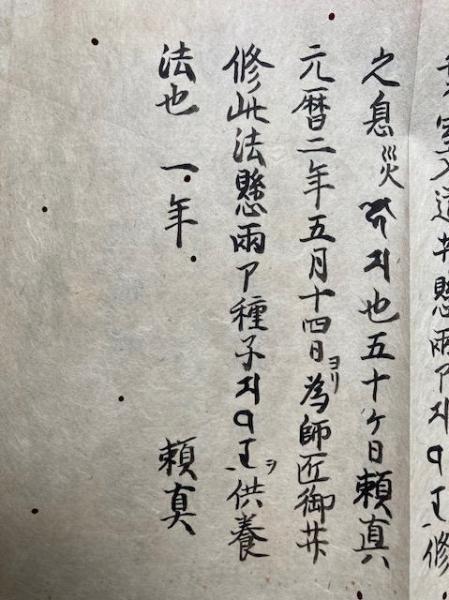 室入道井懸雨ア修
之息災也五十ケ日頼真
元暦二年五月十四日ヨリ為師匠御𦬇
修此法懸雨ア種子ヲ供養
法也 一年 頼真